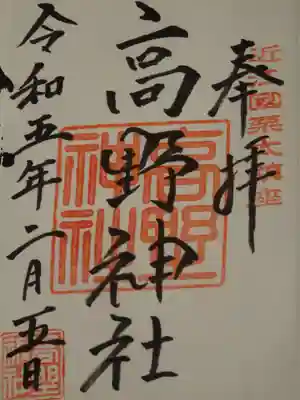 奉拝
近江国栗太鎮座
高野神社
高野神社
令和五年二月五日
高野神社